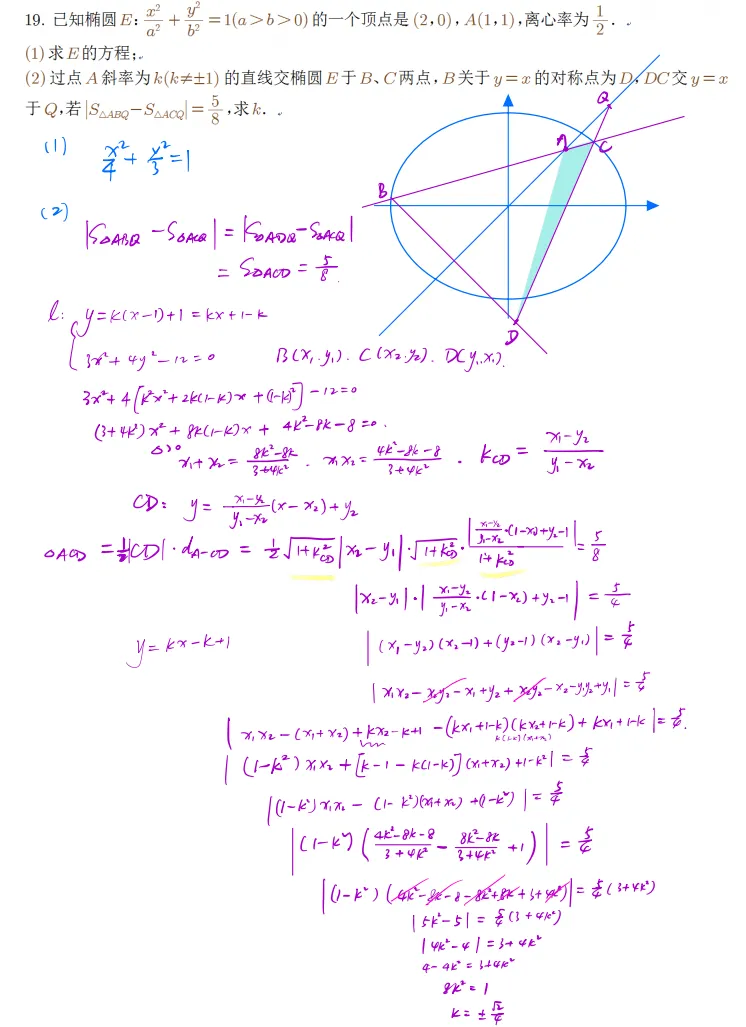 19. 已知椭圆 E: x²/a² + y²/b² = 1(a>b>0) 的一个顶点是 (2,0), A(1,1), 离心率为 1/2.
(1) 求 E 的方程;
(2) 过点 A 斜率为 k(k≠±1) 的直线交椭圆 E 于 B、C 两点, B 关于 y=x 的对称点为 D, DC 交 y=x
于 Q, 若 |S△ABQ−S△ACQ| = 5/8, 求 k.
Q
A
C
B
D
(1) x²/4 + y²/3 = 1
(2)
|S△ABQ − S△ACQ| = |S△ADQ − S△ACQ|
= S△ACD = 5/8.
l: y = k(x−1)+1 = kx+1−k
3x²+4y²−12=0 B(x₁,y₁). C(x₂,y₂). D(y₁,x₁).
3x²+4[k²x²+2k(1−k)x+(1−k)²]−12=0
(3+4k²)x²+8k(1−k)x+4k²−8k−8=0.
△>0
x₁+x₂ = (8k²−8k)/(3+4k²). x₁x₂ = (4k²−8k−8)/(3+4k²). k_CD = (x₁−y₂)/(y₁−x₂)
CD: y = (x₁−y₂)/(y₁−x₂) (x−x₂)+y₂
△ACD = ½|CD|·d_A−CD = ½√(1+k²_CD) |x₂−y₁|·√(1+k²_CD)·|(x₁−y₂)/(y₁−x₂)·(1−x₂)+y₂−1|/(1+k²_CD) = 5/8
|x₂−y₁|·|(x₁−y₂)/(y₁−x₂)·(1−x₂)+y₂−1| = 5/4
y=kx−k+1 |(x₁−y₂)(x₂−1)+(y₂−1)(x₂−y₁)| = 5/4
|x₁x₂−x₂y₂−x₁+y₂+x₂y₂−x₂−y₁y₂+y₁| = 5/4
|x₁x₂−(x₁+x₂)+kx₂−k+1−(kx₁+1−k)(kx₂+1−k)+kx₁+1−k| = 5/4.
k(1−k)(x₁+x₂)
|(1−k²)x₁x₂+[k−1−k(1−k)](x₁+x₂)+1−k²| = 5/4
|(1−k²)x₁x₂−(1−k²)(x₁+x₂)+(1−k²)| = 5/4
|(1−k²)((4k²−8k−8)/(3+4k²) − (8k²−8k)/(3+4k²) + 1)| = 5/4
|(1−k²)(4k²−8k−8−8k²+8k+3+4k²)| = 5/4(3+4k²)
|5k²−5| = 5/4(3+4k²)
|4k²−4| = 3+4k²
4−4k² = 3+4k²
8k² = 1
k = ±√2/4